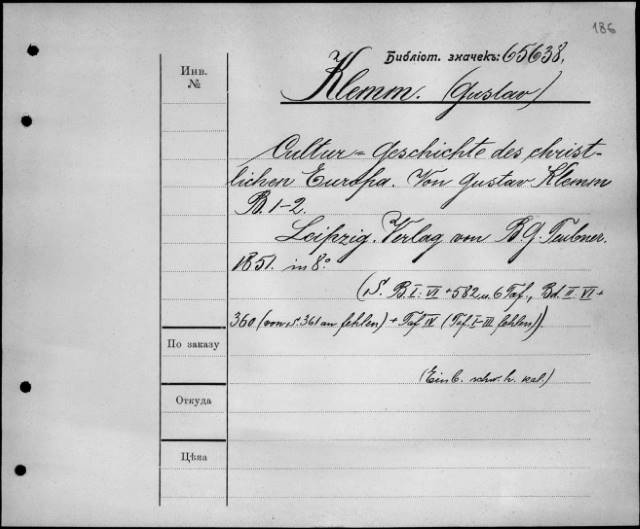 186
Библіот. значек: 65638,
Инв.
№
Klemm. (Gustav)
Cultur=Geschichte des christ-
lichen Europa. Von Gustav Klemm
B. 1-2.
Leipzig. Verlag von B.G. Teubner.
1851. in 8°.
(S. B. I: VI + 582 u. 6 Taf., Bd. II: VI +
360 (von S. 361 an fehlen) + Taf IV (Taf. I-III fehlen)).
По заказу
(Einb. schw. h.
Откуда
Цѣна